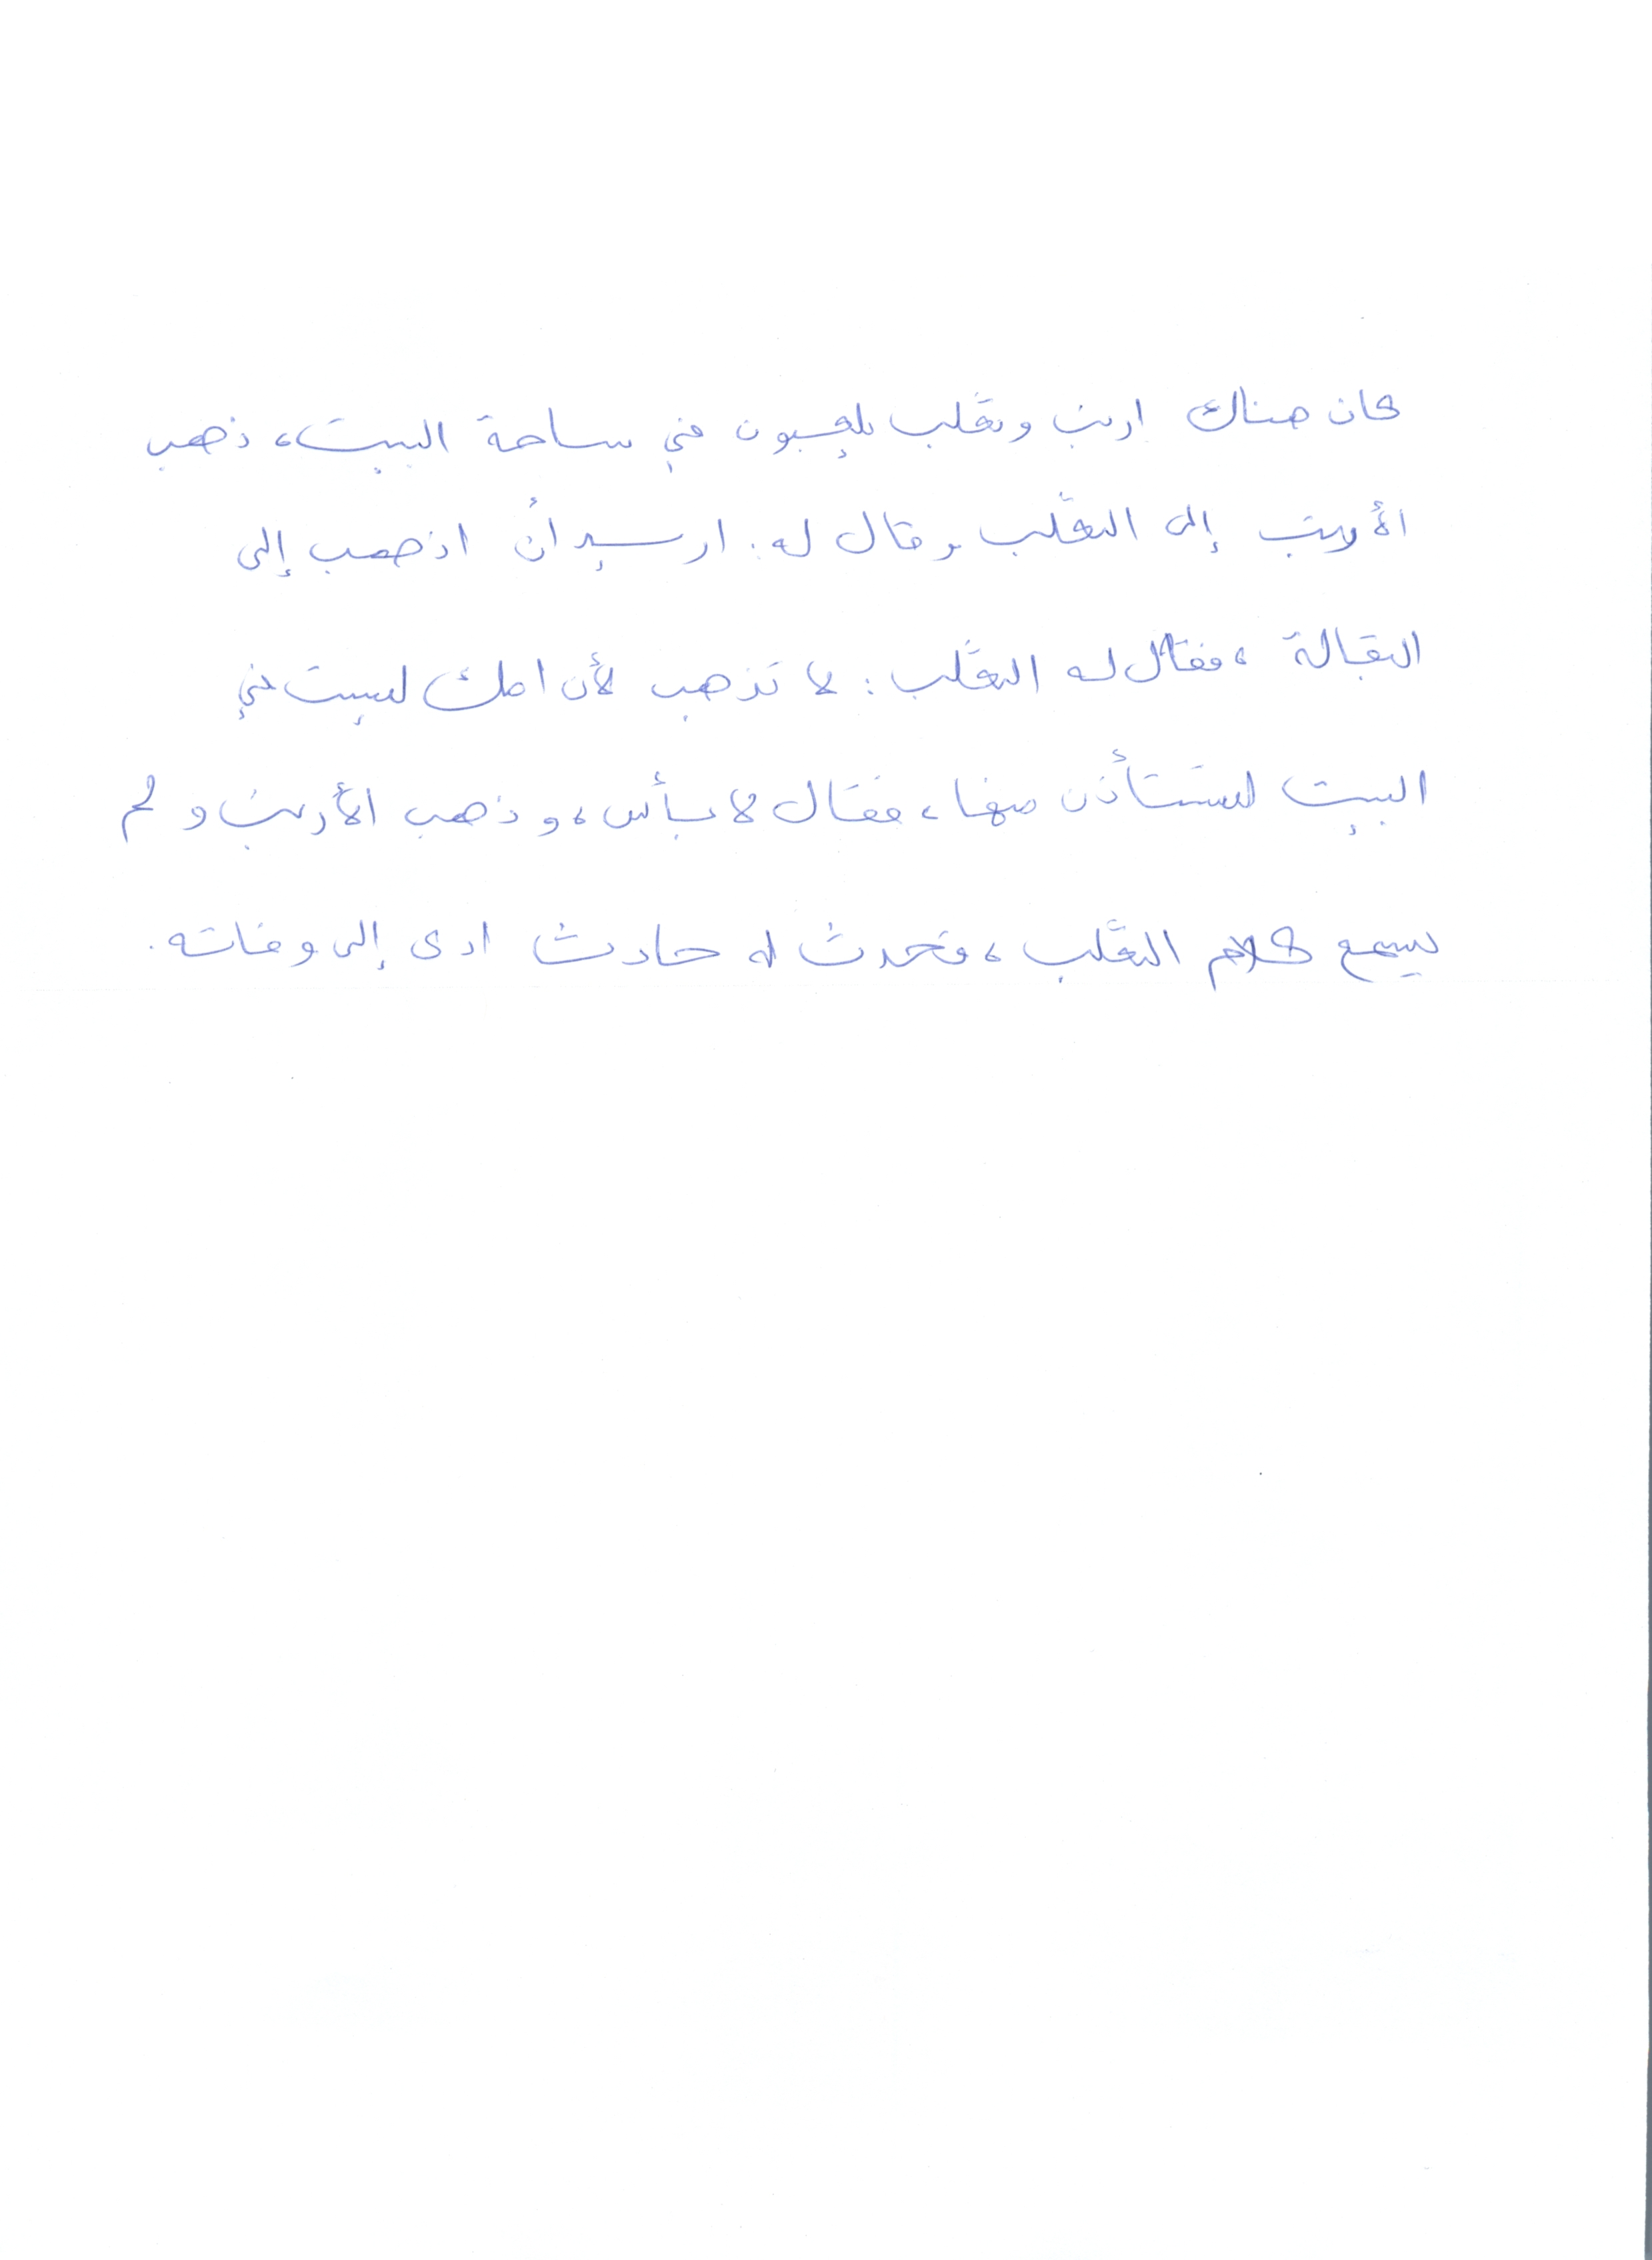 كان هناك ارنب وثعلب يلعبون في ساحة البيت، ذهب
الأرنب إلى الثعلب وقال له: اريد أن اذهب إلى
البقالة، فقال له الثعلب: لا تذهب لأن امك ليست في
البيت لتستأذن منها، فقال لا بأس، وذهب الأرنب و لم
يسمع كلام الثعلب، فحدث له حادث ادى إلى وفاته.